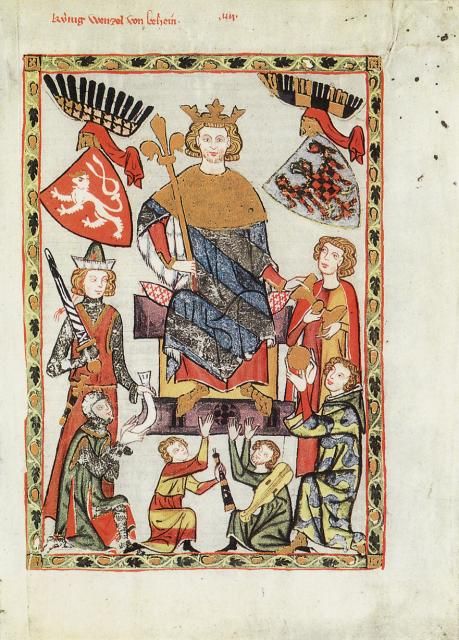 künig wenzel von behein.